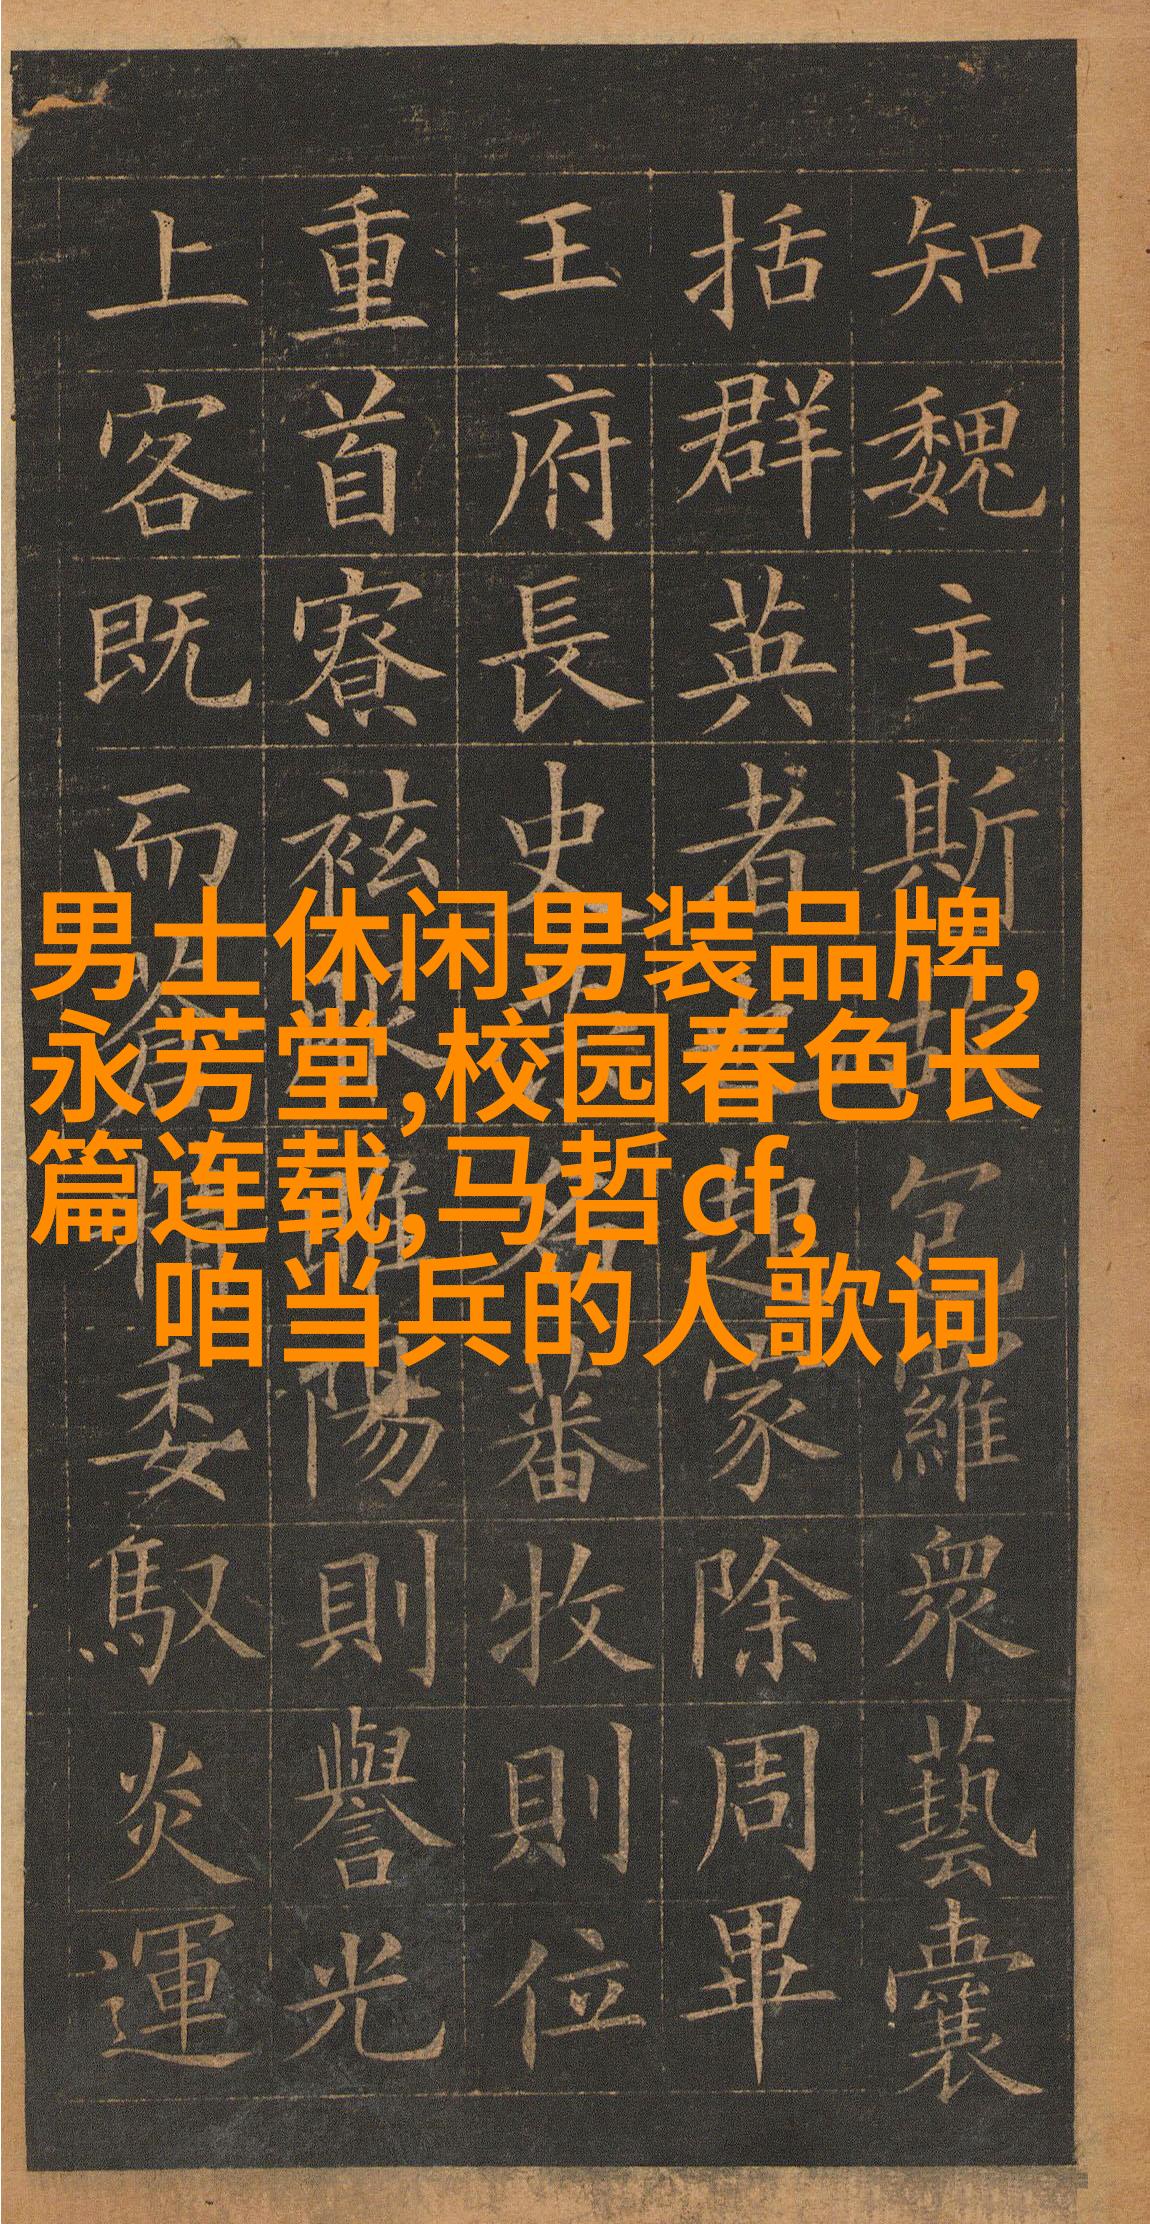 知魏主斯故包羅眾藝囊
括群英者也起家除周畢
王府長史榮名蕃牧則位
重首寮袨服睢陽則譽光
上客既而蒼精委馭炎運
男士休闲男装品牌,
永芳堂,校园春色长
篇连载,马哲cf,
咱当兵的人歌词